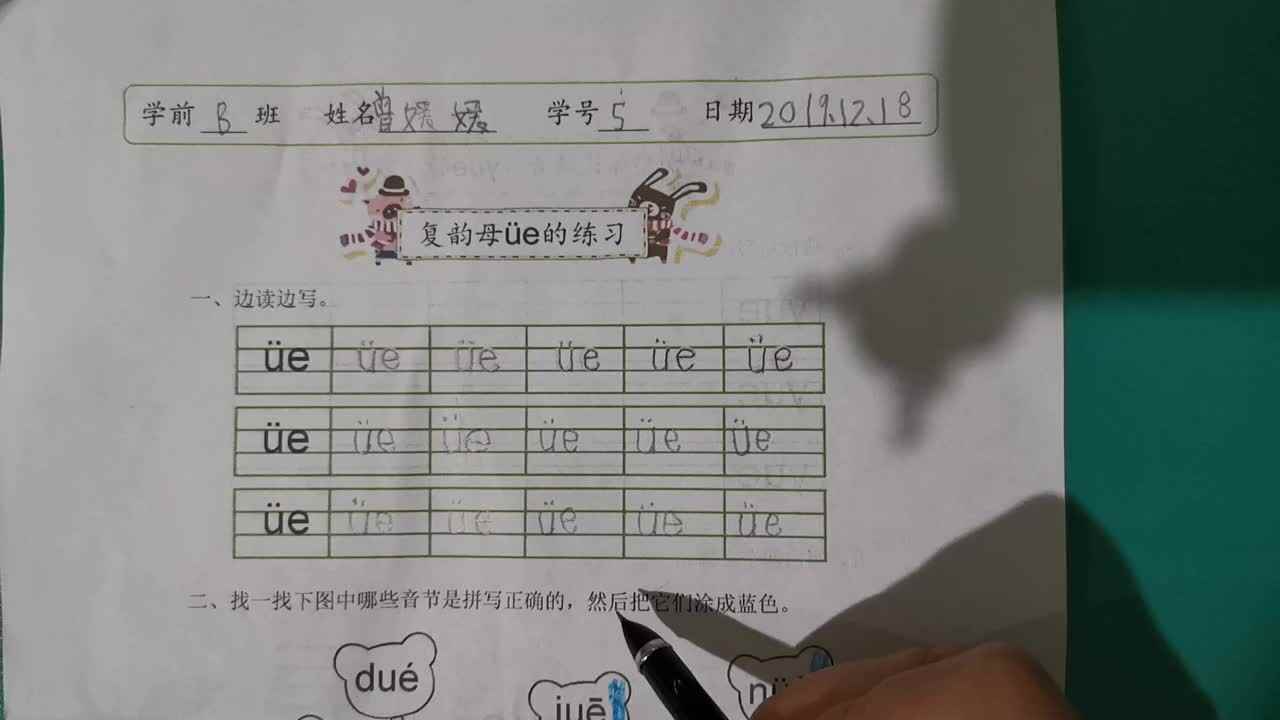 学前 B 班 姓名曾媛媛 学号 5 日期2019.12.18
复韵母üe的练习
一、边读边写。
üe üe üe üe üe üe
üe üe üe üe üe üe
üe üe üe üe üe üe
二、找一找下图中哪些音节是拼写正确的，然后把它们涂成蓝色。
dué
juē